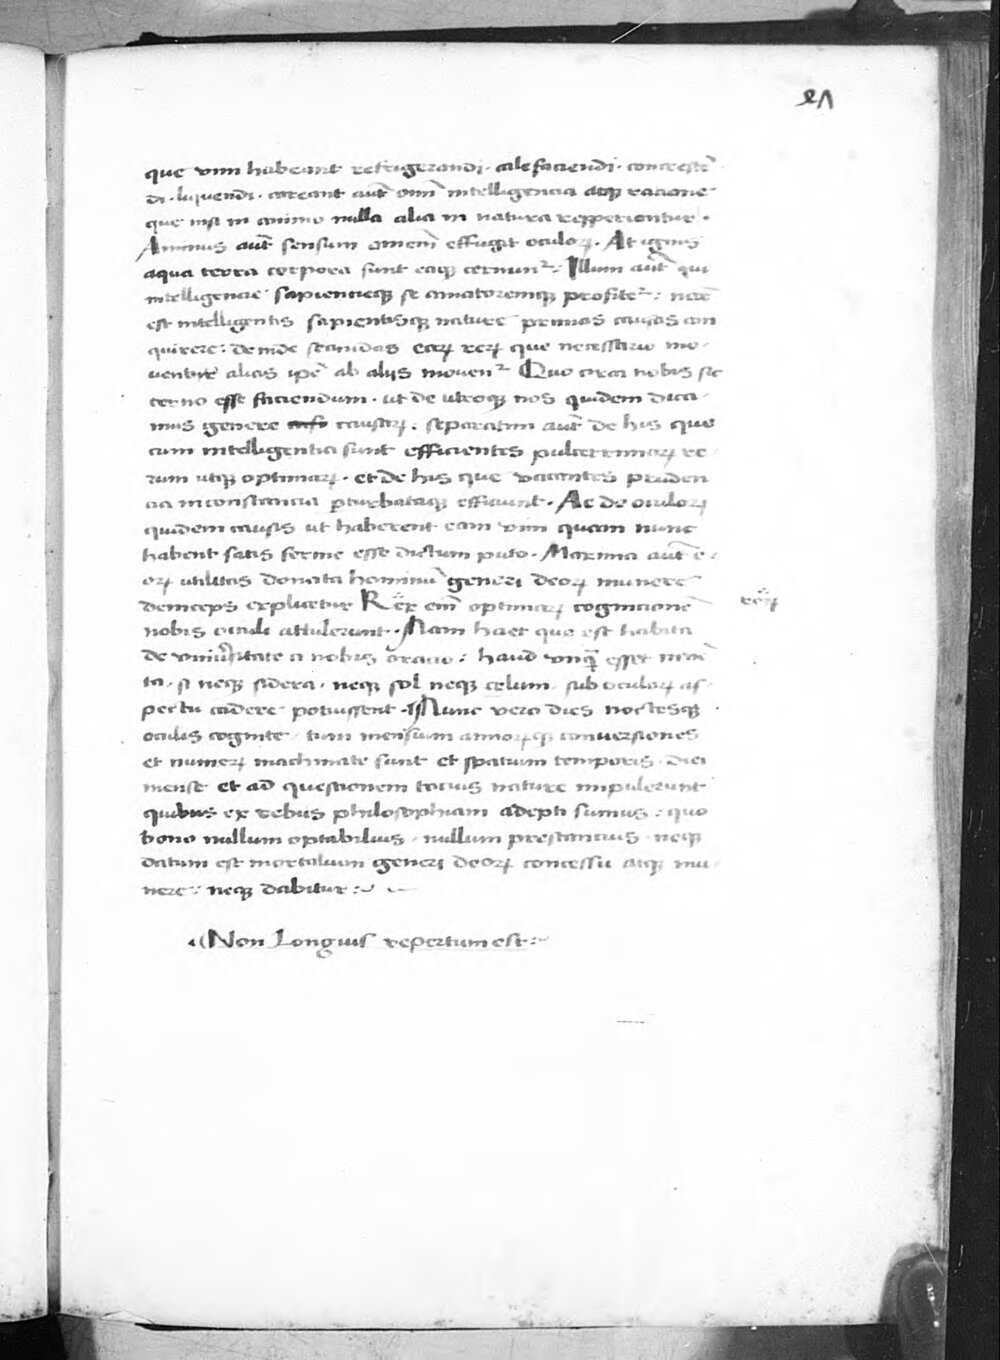 que vim habeant refrigerandi · calefaciendi · concrescē
di · liquendi · careant aut̄ omī intelligencia atq; ratione
que nisi in animo nulla alia in natura reperiontur ·
Animus aut̄ sensum omnem̄ effugit oculoꝝ · At ignis
aqua terra corpora sunt eaq; cernunt᷑ : Illum aut̄ qui
intelligencie sapiencieq; se amatoremq; profitet᷑ :
est intelligentis sapientisq; nature primas causas con
quirere : deinde secundas earꝝ rerꝝ que necessario mo ·
ventur alias ipē ab aliis movent᷑ Quo circa nobis sic
cerno esse faciendum · ut de utroq; nos quidem dica ·
mus genere causarꝝ : separatim aut̄ de his que
cum intelligentia sunt efficientes pulcerrimarꝝ re ·
rum utq; optimarꝝ · et de his que vacantes pruden
cia inconstancia ꝑturbataq; efficiunt · Ac de oculoꝝ
quidem causis ut haberent eam vim quam nunc
habent satis ferme esse dictum puto · Maxima aut̄ e ·
orꝝ utilitas donata hominū generi deorꝝ munere
deinceps explicetur Rex eim̄ optimarꝝ cognicionē
rerꝝ
nobis oculi attulerunt · Nam haec que est habita
de universitate a nobis oracio : haud unq̄ esset
ta · si neq; sidera · neq; sol neq; celum · sub oculorꝝ as ·
pectu cadere potuissent · Nunc vero dies noctesq;
oculis cognite · tum mensium annorꝝq; conversiones
et numerꝝ machinate sunt et spatium temporis · diei
mense et ad questionem tocius nature impulerunt
quibus ex rebus philosophiam adepti sumus : quo
bono nullum optabilius · nullum prestancius · neq;
datum est mortalium generi deorꝝ concessu atq; mu ·
nere : neq; dabitur :
Non Longius repertum est :